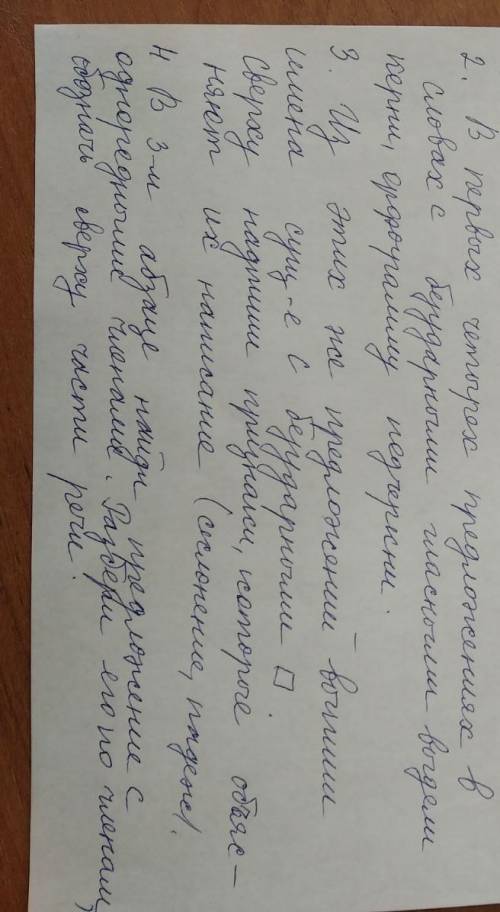 2. В первых четырех предложениях в
словах с безударными гласными выдели
корни, орфограмму подчеркни.
3. Из этих же предложений выпиши
имена сущ-е с безударными □.
Сверху надпиши признаки, которые объяс-
няют их написание (склонение, падеж).
4 В 3-м абзаце найди предложение с
однородными членами. Разбери его по членам,
обозначь сверху части речи.